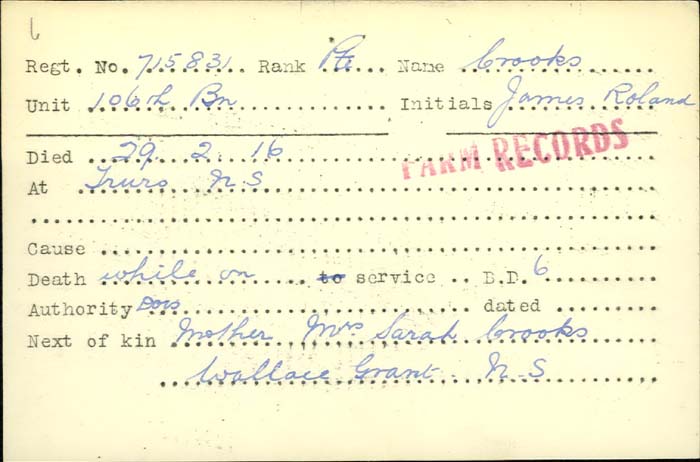 6
Regt. No. 715831 Rank Pte Name Crooks
Unit 106th Bn Initials James Roland
Died 29 2 16
At Truro N.S
PARM RECORDS
Cause
Death while on to service B.D. 6
Authority Docs dated
Next of kin Mother Mrs Sarah Crooks
Wallace Grant N-S